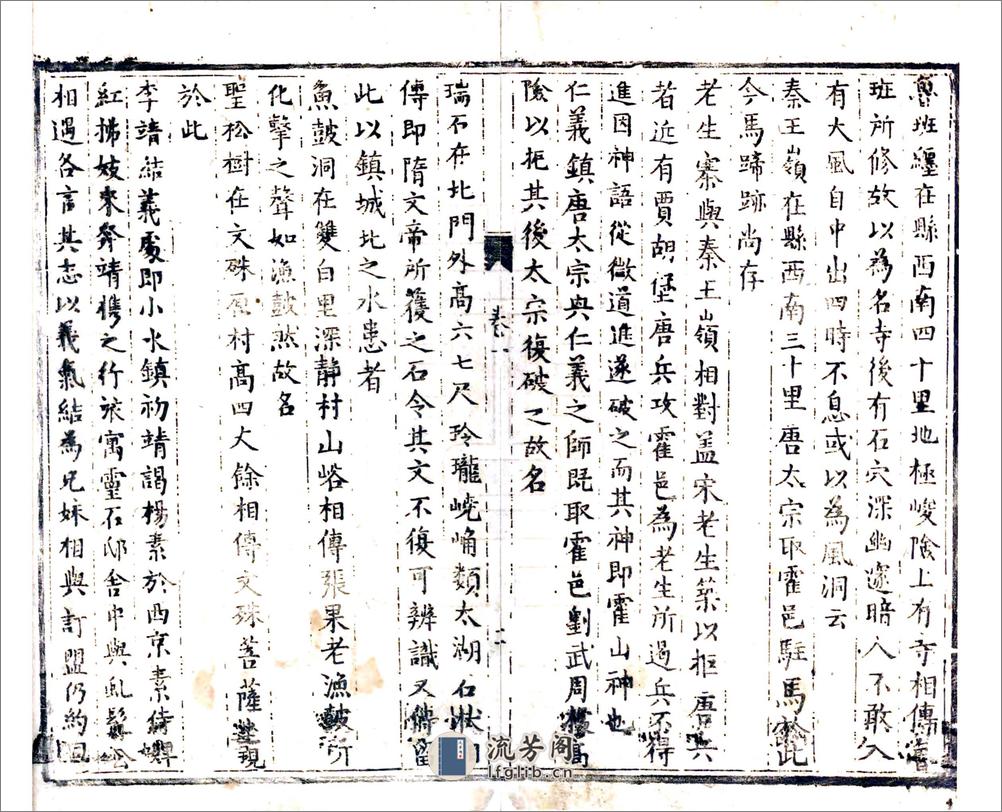 魯班纏在縣西南四十里地極峻險上有寺相傳魯
班所修故以為名寺後有石穴深幽邃暗人不敢入
有大風自中出四時不息或以為風洞云
秦王嶺在縣西南三十里唐太宗取霍邑駐馬於此
今馬蹄跡尚存
老生寨與秦王嶺相對盖宋老生築以拒唐兵
者近有賈胡堡唐兵攻霍邑為老生所過兵不得
進因神語從微道進遂破之而其神即霍山神也
仁義鎮唐太宗興仁義之師既取霍邑劉武周據高
險以拒其後太宗復破之故名
卷一
二
瑞石在北門外高六七尺玲瓏嶢崅類太湖石狀
傳即隋文帝所獲之石令其文不復可辨識又傳留
此以鎮城北之水患者
魚鼓洞在雙白里深静村山峪相傳張果老漁鼓所
化擊之聲如漁鼓然故名
聖松樹在文殊原村高四大餘相傳文殊菩薩現
於此
李靖結義處即小水鎮初靖謁楊素於西京素侍婢
紅拂妓來奔靖携之行旅寓靈石邸舍中與虬髯
相遇各言其志以義氣結為兄妹相與訂盟仍約回
流芳阁
lfglib.cn